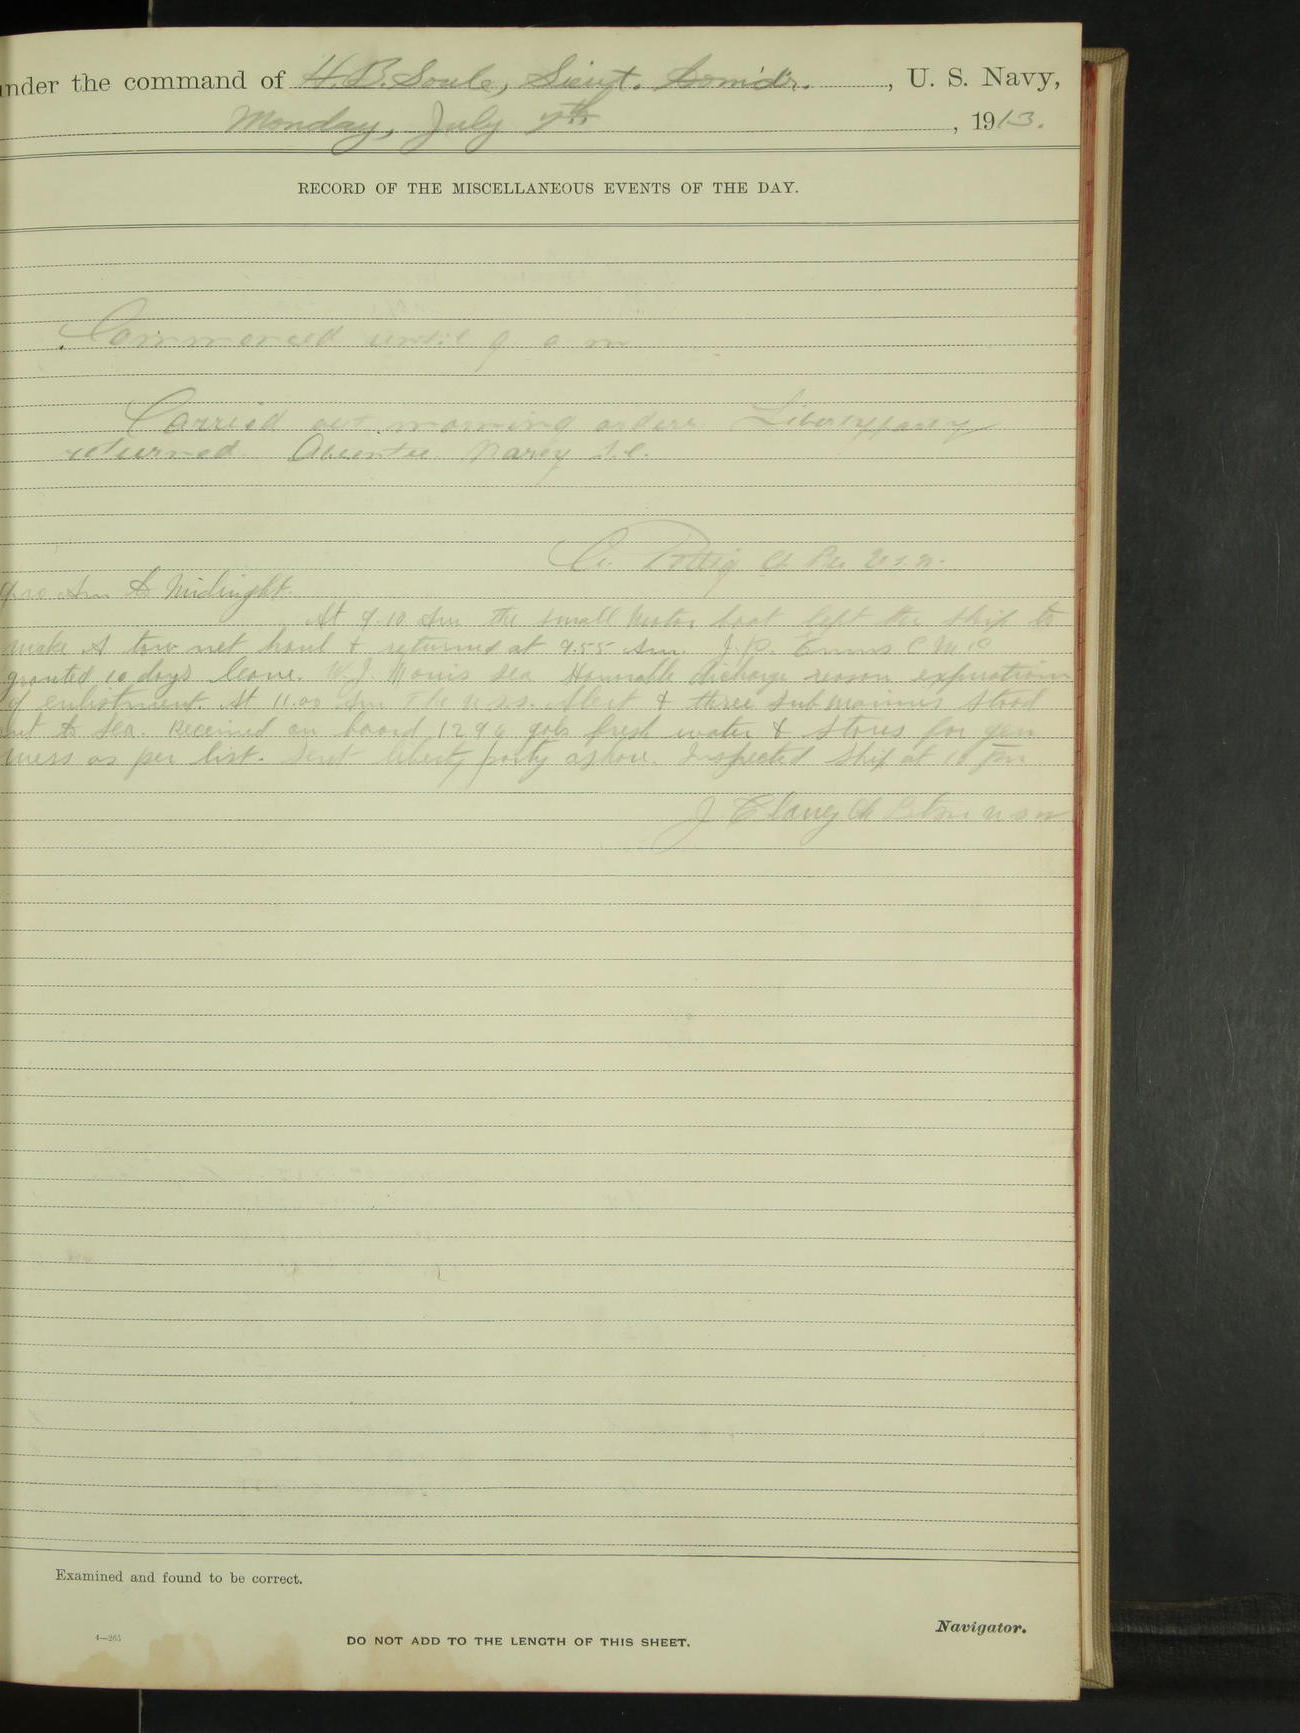 under the command of H. B. Soule, Lieut. Comd'r. , U. S. Navy,
Monday, July 7th , 1913.
RECORD OF THE MISCELLANEOUS EVENTS OF THE DAY.
Commenced until 9 a m
Carried out morning orders Liberty party
returned. Absentee
At 9.10 Am the small Motor boat left the ship to
make A tow net haul & returned at 9.55 Am. J. P.
granted 10 days leave. W. J. Sea Honorable discharge reason expiration
of enlistment. At 11.00 Am The U.S.S. & three Submarines Stood
out to Sea. Received on board 1296 gals fresh water & Stores for gen
mess as per list. Sent liberty party ashore. Inspected Ship at 10 pm
Examined and found to be correct.
Navigator.
4—265
DO NOT ADD TO THE LENGTH OF THIS SHEET.